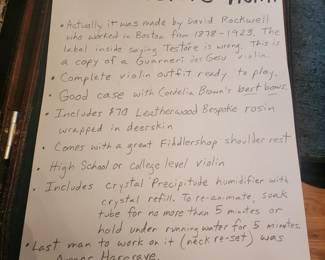 • Actually it was made by David Rockwell
who worked in Boston from 1878-1923. The
label inside saying Testore is wrong. This is
a copy of a Guarneri des Gesu violin.
• Complete violin outfit ready to play.
• Good case with Cordelia Brown's best bows.
• Includes $70 Leatherwood Bespoke rosin
wrapped in deerskin
• Comes with a great Fiddlershop shoulder rest
• High School or college level violin
• Includes crystal Precipitude humidifier with
crystal refill. To re-animate, soak
tube for no more than 5 minutes or
hold under running water for 5 minutes.
• Last man to work on it (neck re-set) was
Hargrave.